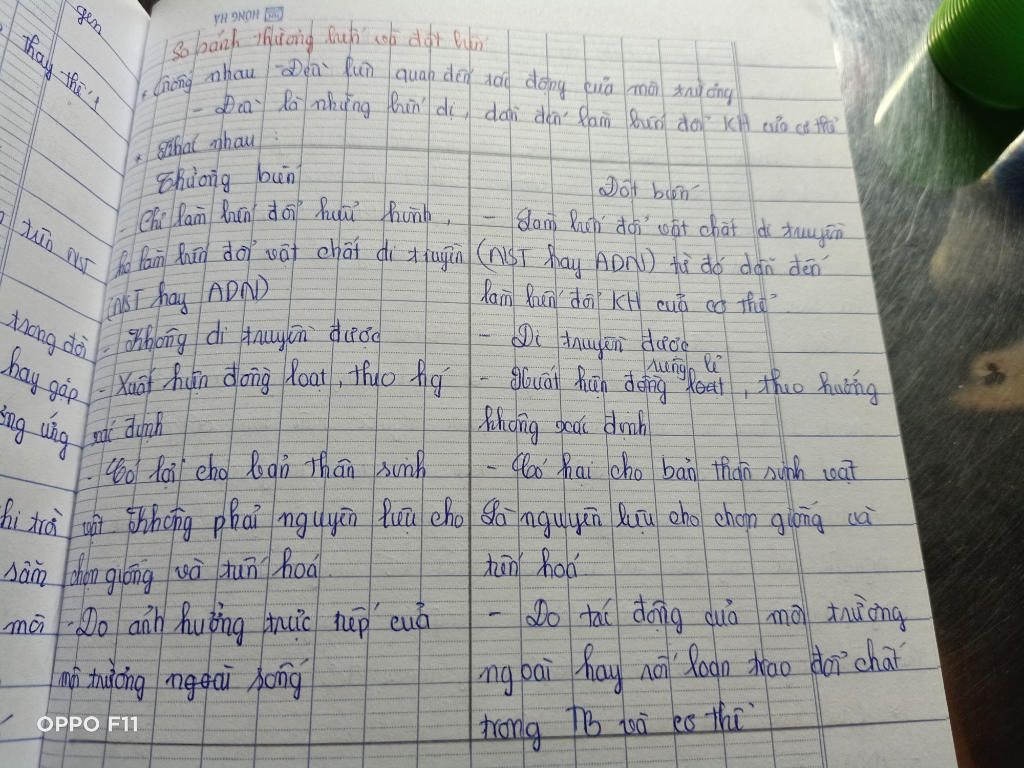 HONG HA
So sánh thường biến và đột biến
* Giống nhau - Đều liên quan đến tác động của môi trường
- Đều là những biến dị, dẫn đến làm biến đổi KH của cơ thể
* Khác nhau :
Thường biến
- Chỉ làm biến đổi kiểu hình,
ko làm biến đổi vật chất di truyền
(NST hay ADN)
- Không di truyền được
- Xuất hiện đồng loạt, theo hg
xác định
- Có lợi cho bản thân sinh
vật Không phải nguyên liệu cho
chọn giống và tiến hoá
- Do ảnh hưởng trực tiếp của
môi trường ngoài sống
Đột biến
- Làm biến đổi vật chất di truyền
(NST hay ADN) từ đó dẫn đến
làm biến đổi KH của cơ thể
- Di truyền được
riêng lẻ
- Xuất hiện đồng loạt, theo hướng
không xác định
- Có hại cho bản thân sinh vật
Là nguyên liệu cho chọn giống và
tiến hoá
- Do tác động của môi trường
ngoài hay rối loạn trao đổi chất
trong TB và cơ thể
gen
thay thế
trên NST
trong đời
hay gặp
ứng
trả
sằm
môi
OPPO F11